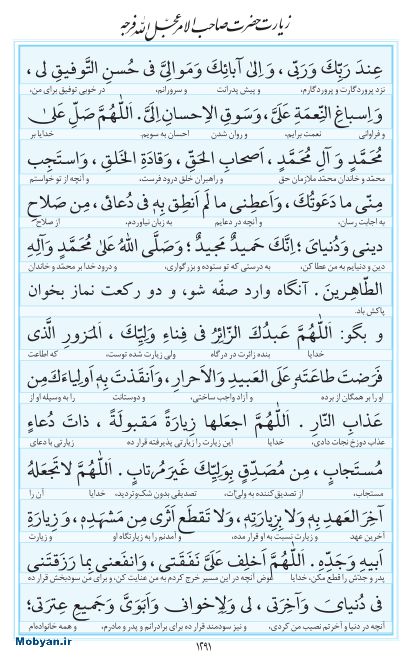 زیارت حضرت صاحب الامر عجل الله فرجه
عِندَ رَبِّكَ وَرَبّى ، وَ اِلىٰ آبائِكَ وَمَوالِىَّ فى حُسنِ التَّوفيقِ لى ،
نزد پروردگارت و پروردگارم، و پیش پدرانت و سرورانم، در خوبی توفیق برای من،
وَ اِسباغِ النِّعمَةِ عَلَىَّ ، وَسَوقِ الاِحسانِ اِلَىَّ. اَللّٰهُمَّ صَلِّ عَلىٰ
و فراوانی نعمت برایم، و روان شدن احسان به سویم. خدایا بر
مُحَمَّدٍ وَ آلِ مُحَمَّدٍ ، اَصحابِ الحَقِّ ، وَقادَةِ الخَلقِ ، وَاستَجِب
محمّد و خاندان محمّد ملازمان حق و راهبران خلق درود فرست، و آنچه از تو خواستم
مِنّى ما دَعَوتُكَ ، وَاَعطِنى ما لَم اَنطِق بِهِ فى دُعائى ، مِن صَلاحِ
به اجابت رسان، و آنچه در دعایم به زبان نیاوردم، از صلاح
دينى وَ دُنياىَ ؛ اِنَّكَ حَميدٌ مَجيدٌ ؛ وَصَلَّى اللهُ عَلىٰ مُحَمَّدٍ وَآلِهِ
دین و دنیایم به من عطا کن، به درستی که تو ستوده و بزرگواری، و درود خدا بر محمّد و خاندان
الطّاهِرينَ . آنگاه وارد صفّه شو، و دو رکعت نماز بخوان
پاکش باد.
و بگو: اَللّٰهُمَّ عَبدُكَ الزّائِرُ فى فِناءِ وَلِيِّكَ ، اَلمَزورِ الَّذى
خدایا بنده زائرت در درگاه ولی زیارت شده توست، که اطاعت
فَرَضتَ طاعَتَهُ عَلَى العَبيدِ وَالاَحرارِ ، وَاَنقَذتَ بِهِ اَولِياءَكَ مِن
او را بر همگان از برده و آزاد واجب ساختی، و دوستانت را به وسیله او از
عَذابِ النّارِ . اَللّٰهُمَّ اجعَلها زِيارَةً مَقبولَةً ، ذاتَ دُعاءٍ
عذاب دوزخ نجات دادی، خدایا این زیارت را زیارتی پذیرفته قرار ده زیارتی با دعای
مُستَجابٍ ، مِن مُصَدِّقٍ بِوَلِيِّكَ غَيرِ مُرتابٍ . اَللّٰهُمَّ لا تَجعَلهُ
مستجاب، از تصدیق‌کننده به ولیّ‌ات، تصدیقی بدون شک‌وتردید، خدایا آن را
آخِرَ العَهدِ بِهِ وَلا بِزِيارَتِهِ ، وَلا تَقطَع اَثَرى مِن مَشهَدِهِ ، وَزِيارَةِ
آخرین عهد و زیارت نسبت به او قرار مده، و آمدنم را به زیارتگاه او و زیارت
اَبيهِ وَجَدِّهِ . اَللّٰهُمَّ اَخلِف عَلَىَّ نَفَقَتى ، وَانفَعنى بِما رَزَقتَنى
پدر و جدّش را قطع مکن، خدایا عوض آنچه در این مسیر خرج کردم به من عنایت کن، و برای من سودبخش قرار ده
فى دُنياىَ وَآخِرَتى ، لى وَلِاِخوانى وَاَبَوَىَّ وَجَميعِ عِترَتى ؛
آنچه در دنیا و آخرتم نصیب من کردی، و نیز سودمند قرار ده برای برادرانم و پدر و مادرم، و همه خانواده‌ام
۱۲۹۱
Mobyan.ir